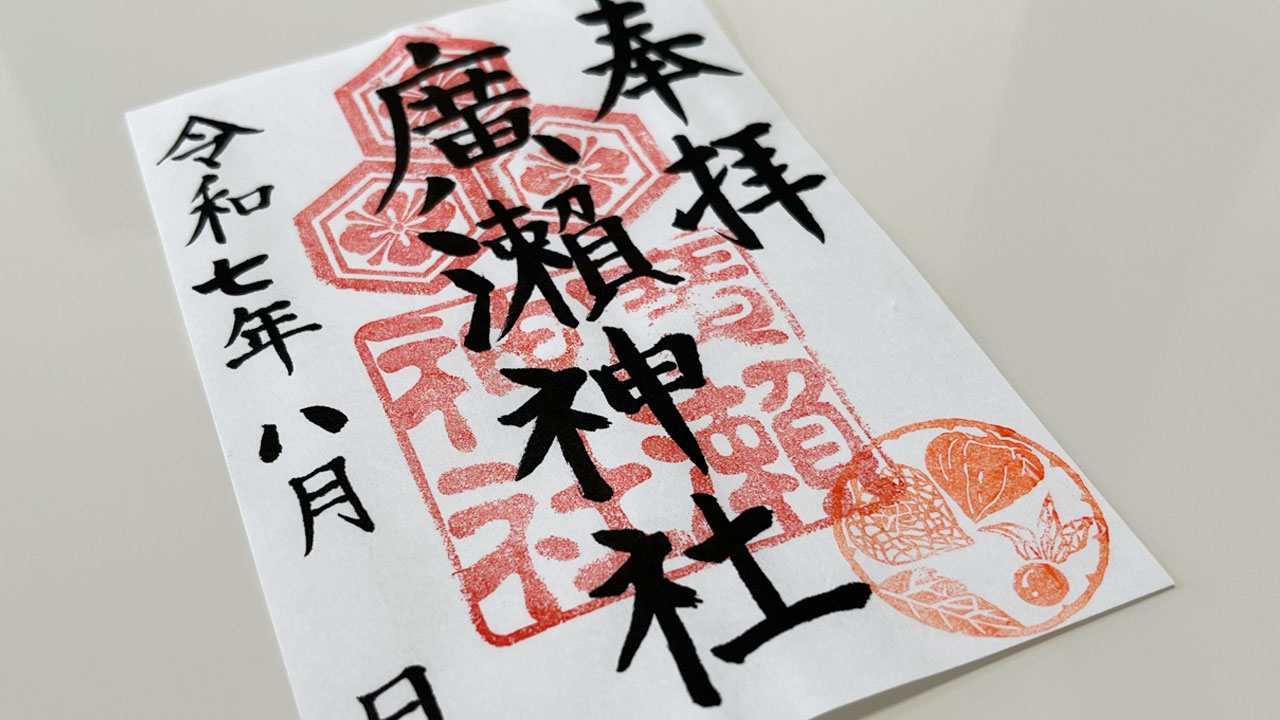 奉拝
廣瀬神社
廣瀬神社
令和七年八月 日